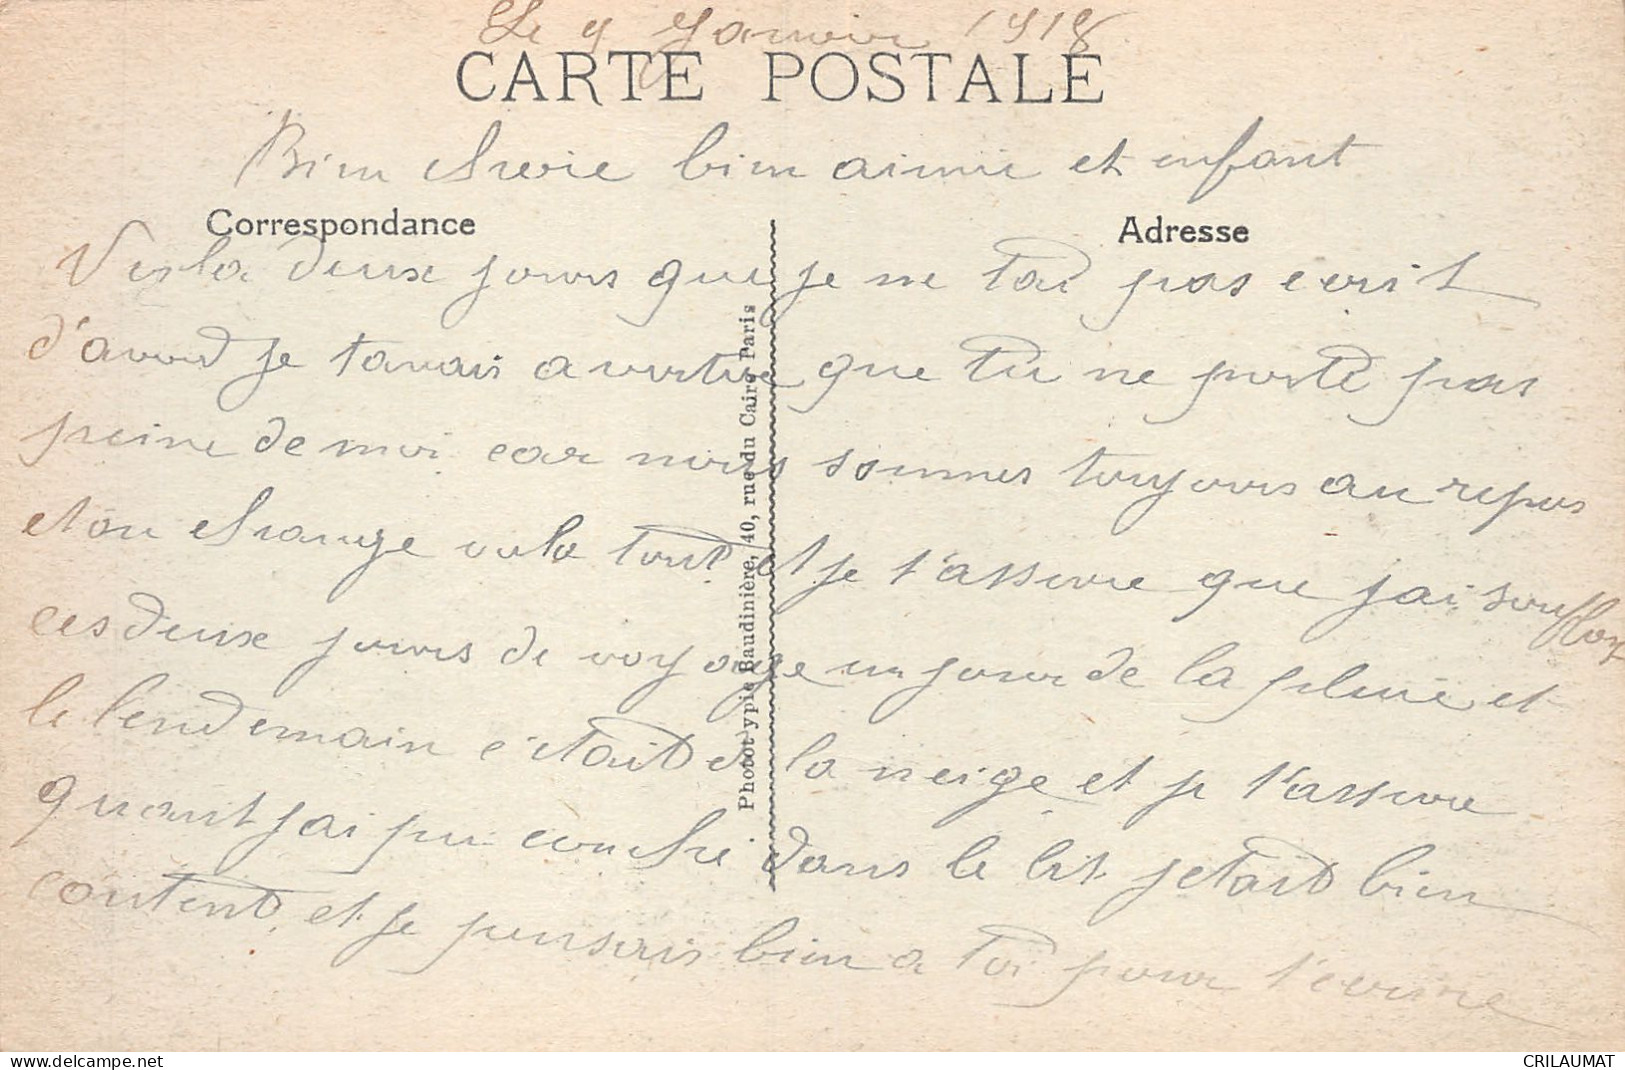 Le 9 Janvier 1918
CARTE POSTALE
Bien cherie bien aimie et enfant
Correspondance
Adresse
Voila deux jours que je ne tai pas ecrit
d'avord je tavais avertire que tu ne porte pas
peine de moi car nous sommes toujours au repos
et on change vela tout et je t'assure que jai
ces deux jours de voyage un jour de la pluie et
le lendemain c'etait de la neige et je t'assure
quant jai pu couché dans le lit jetait bien
content et je pensais bien a toi pour t'ecrire
Phototypie Baudinière, 40, rue du Caire Paris
delcampe.net
CRILAUMAT